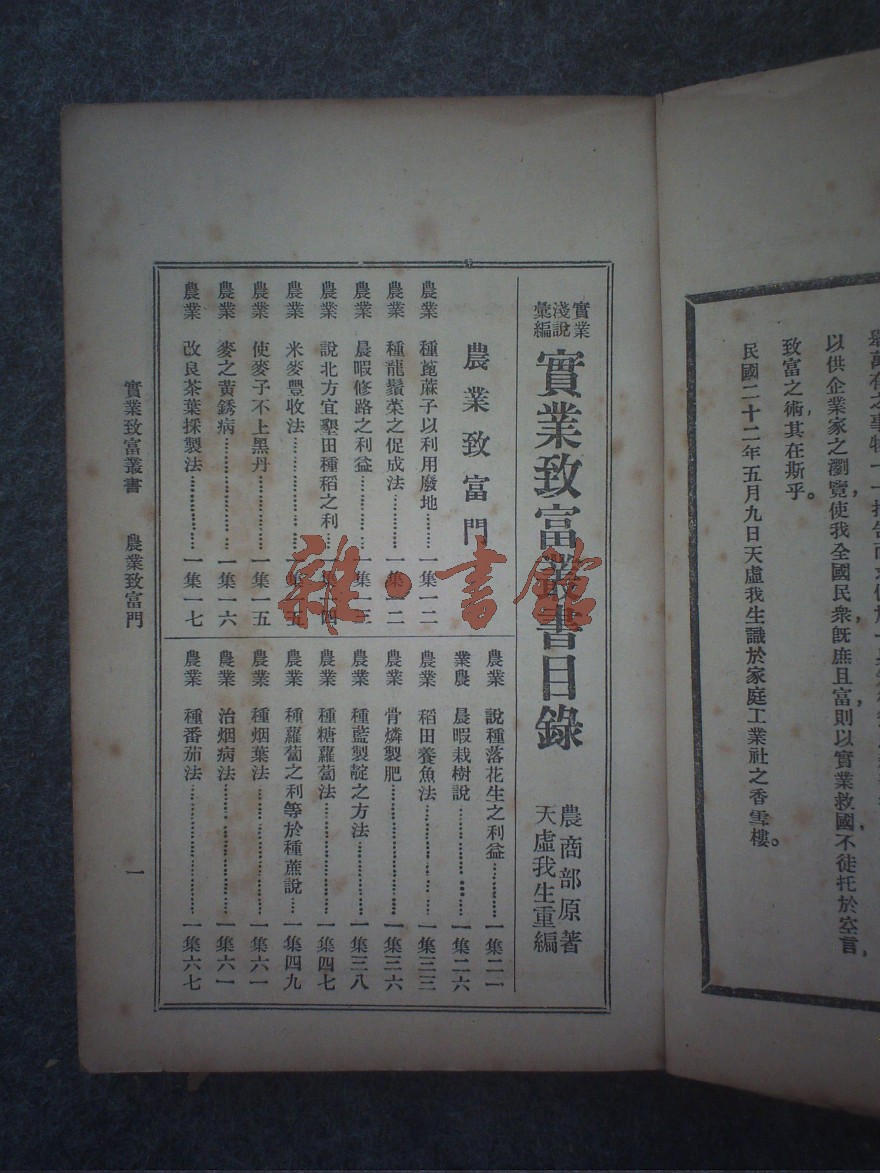 以供企業家之瀏覽，使我全國民衆，既庶且富，則以實業救國，不徒托於空言，
致富之術，其在斯乎。
民國二十二年五月九日天虛我生識於家庭工業社之香雪樓。
實業淺說彙編
實業致富叢書目錄
農商部原著
天虛我生重編
農業致富門
農業 種蓖蔴子以利用廢地………一集一二
農業 種龍鬚菜之促成法…………一集一二
農業 農暇修路之利益……………一集一三
農業 說北方宜墾田種稻之利……一集一四
農業 米麥豐收法…………………一集一五
農業 使麥子不上黑丹……………一集一五
農業 麥之黃銹病…………………一集一六
農業 改良茶葉採製法……………一集一七
農業 說種落花生之利益…………一集二一
業農 農暇栽樹說…………………一集二六
農業 稻田養魚法…………………一集三三
農業 骨燐製肥……………………一集三六
農業 種藍製靛之方法……………一集三八
農業 種糖蘿蔔法…………………一集四七
農業 種蘿蔔之利等於種蔗說……一集四九
農業 種烟葉法……………………一集六一
農業 治烟病法……………………一集六一
農業 種番茄法……………………一集六七
實業致富叢書 農業致富門 一
雜·書館